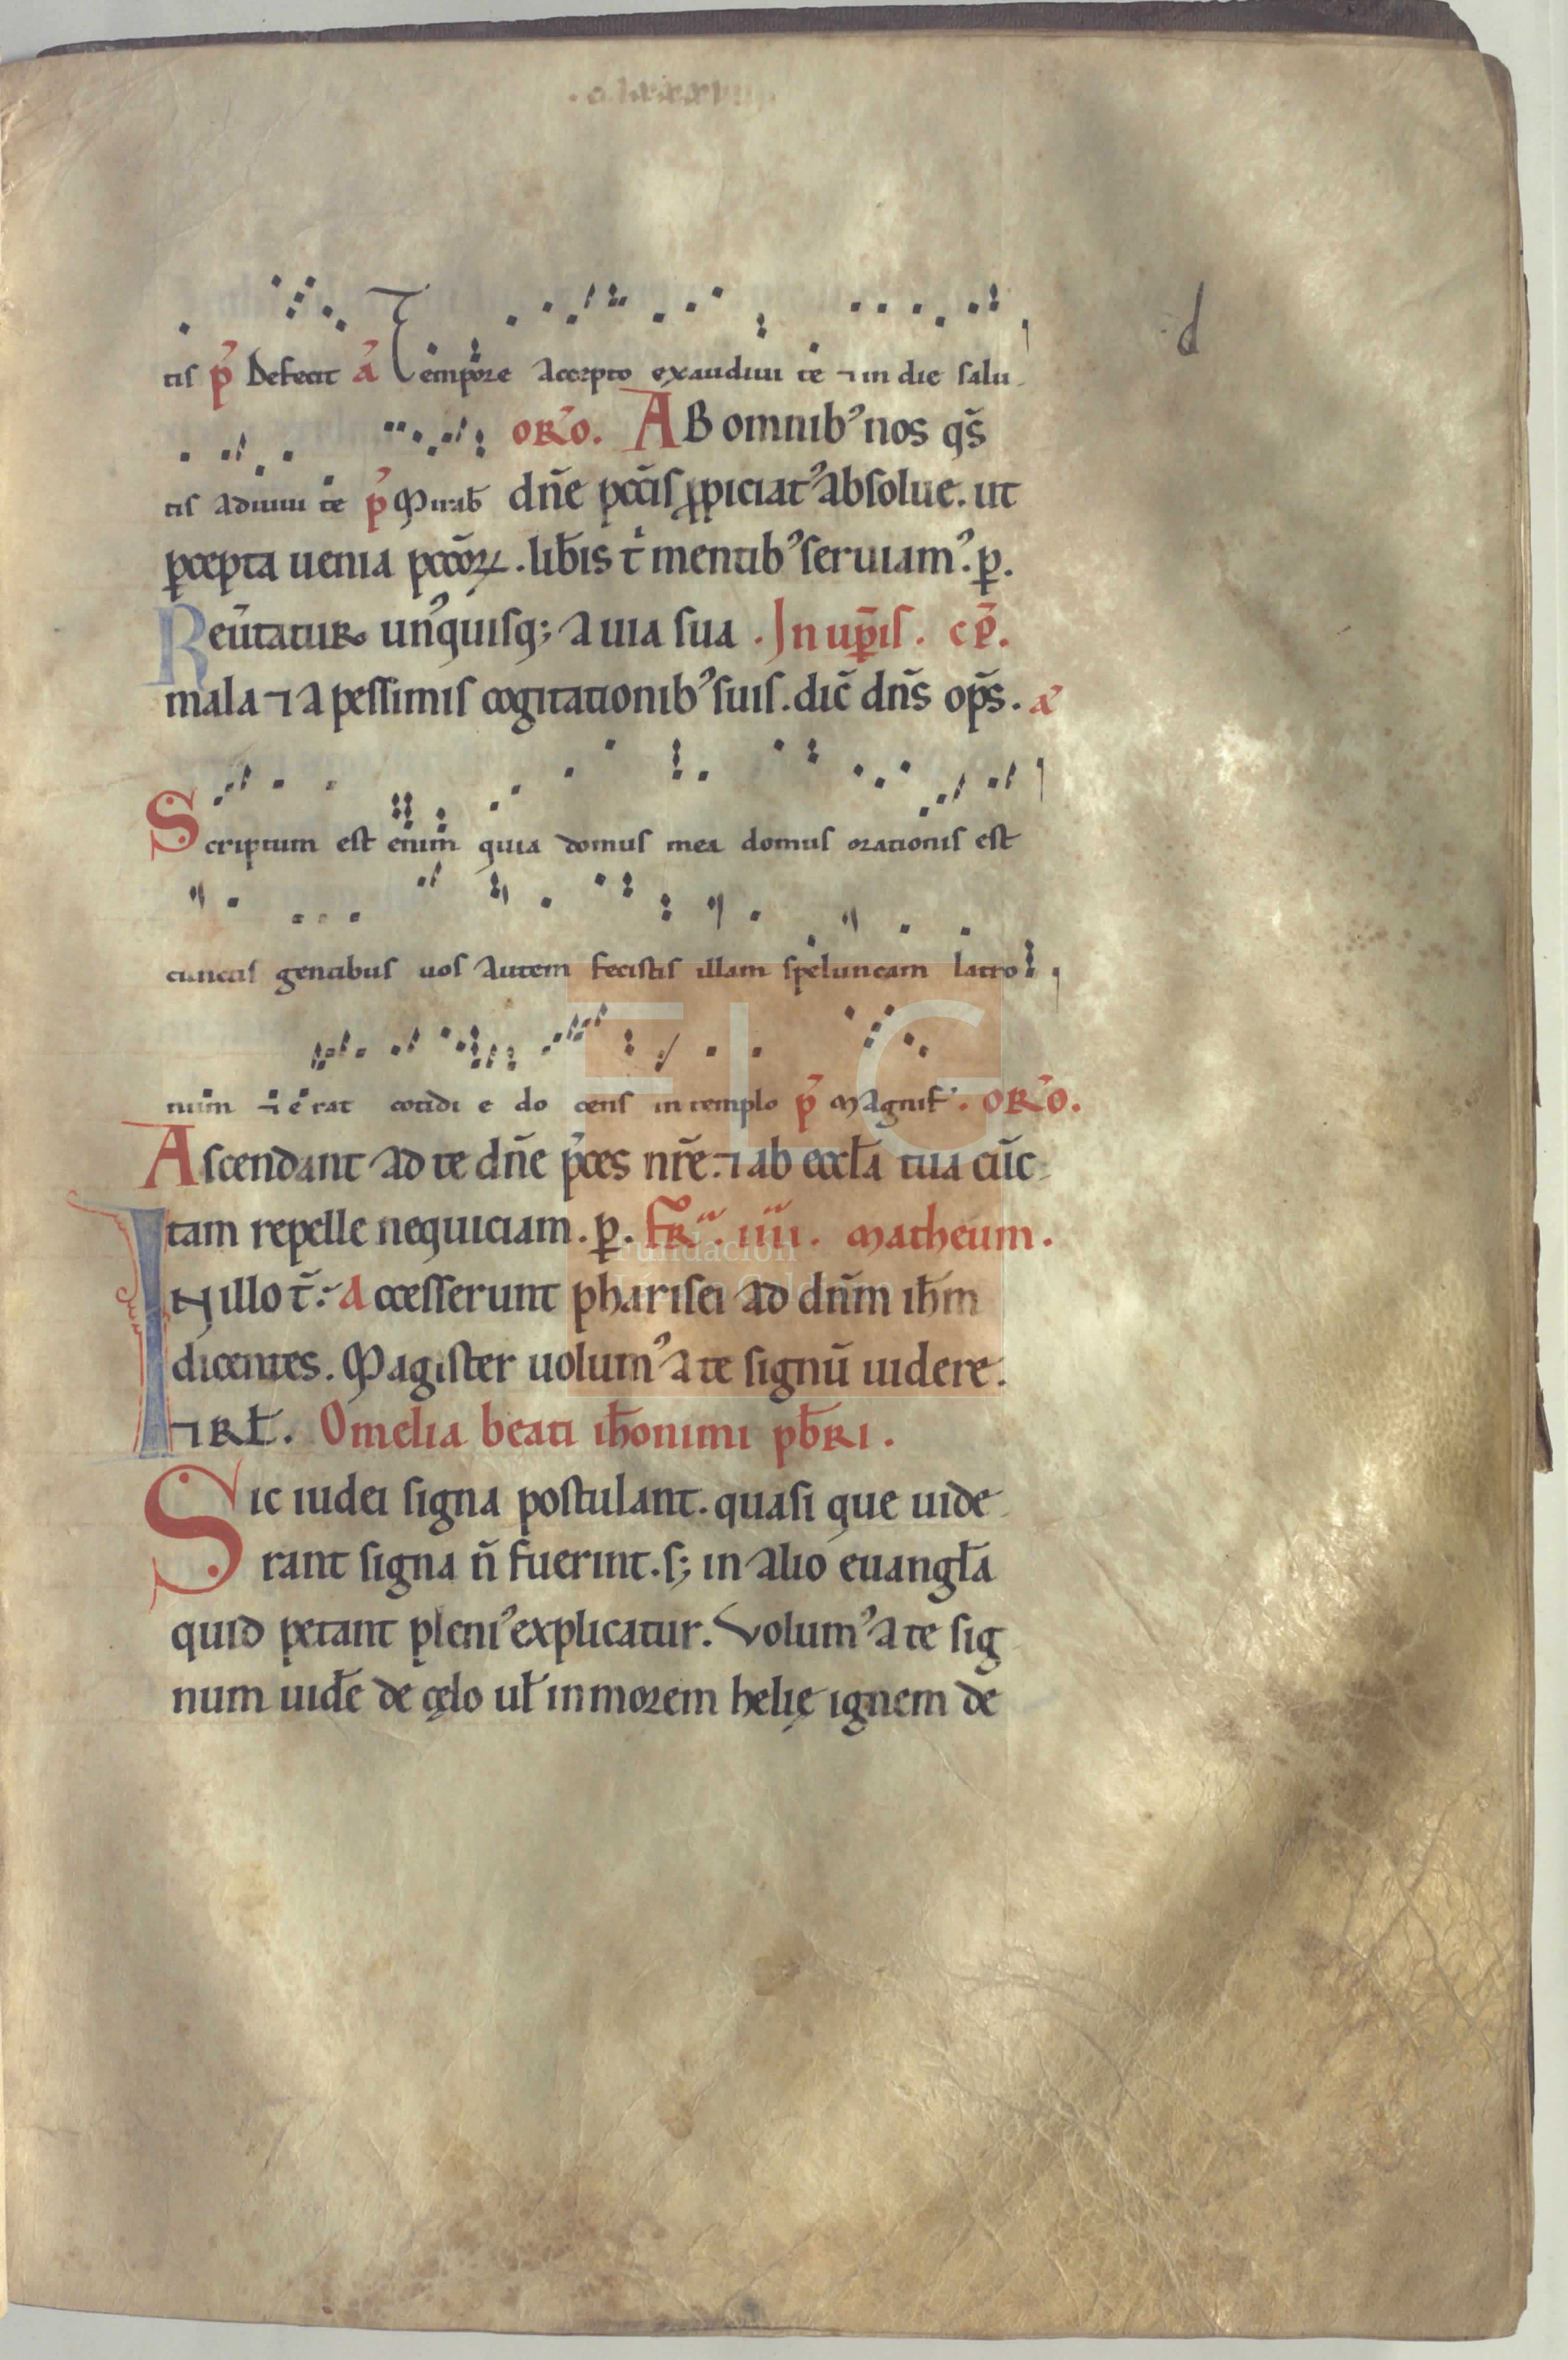 tis p̄ Defecit a᷒ Tempore accepto exaudiui te ⁊ in die salu-
tis adiuui te p̄ Mirab̄ ORO᷒. AB omnib᷒ nos qs̄
dn̄e pcc̄is ꝓpiciat᷒ absolue. ut
ꝑcepta uenia pccōꝝ. lib̄is t̄ mentib᷒ seruiam᷒. ꝑ.
Reūtatur un᷒quisq; a uia sua . In uꝑ̄is . cp̄.
mala ⁊ a pessimis cogitationib᷒ suis. dic̄ dn̄s op̄s. a᷒
Scriptum est enim quia domus mea domus orationis est
cunctis gentibus uos autem fecistis illam speluncam latro
num ⁊ erat cotidi e do cens in templo p̄ Magnif. ORO᷒.
Ascendant ad te dn̄e p̄ces nr̄e. ⁊ ab eccl̄a tua cūc-
tam repelle nequiciam. ꝑ. fr̄. iiii. matheum.
IN illo t̄. Accesserunt pharisei ad dn̄m ih̄m
dicentes. Magister uolum᷒ a te signū uidere.
⁊ Rl̄. Omelia beati ih̄onimi pb̄ri.
Sic iudei signa postulant. quasi que uide-
rant signa n̄ fuerint. s; in alio euangl̄a
quid petant pleni᷒ explicatur. Volum᷒ a te sig
num uid̄e de cęlo ul̄ in morem helię ignem de
d
FLG
Fundación